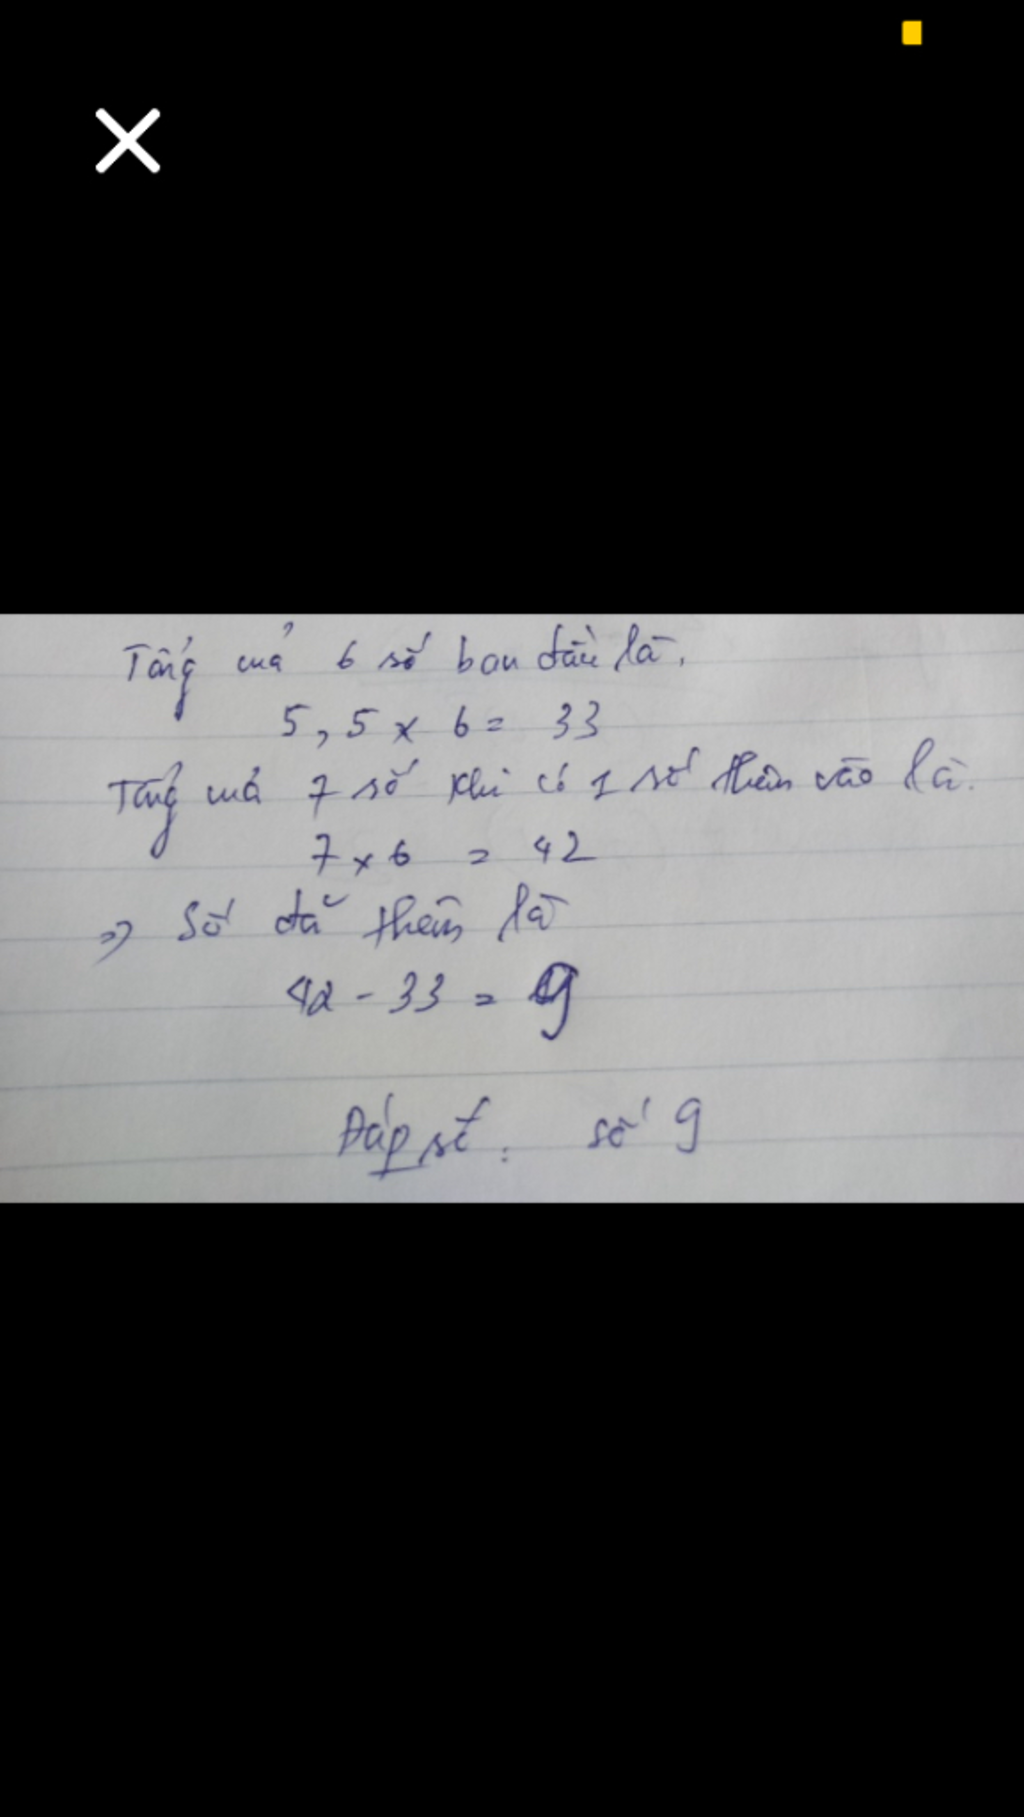 Tổng của 6 số ban đầu là.
5,5 x 6 = 33
Tổng của 7 số khi có 1 số thêm vào là.
7 x 6 = 42
=> Số đã thêm là
42 - 33 = 9
Đáp số: số 9